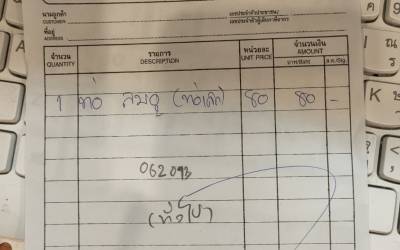 นามลูกค้า
CUSTOMER
เลขประจำตัวประชาชน/
เลขประจำตัวผู้เสียภาษีอากร
ที่อยู่
ADDRESS
จำนวน รายการ หน่วยละ จำนวนเงิน
QUANTITY DESCRIPTION UNIT PRICE AMOUNT
บาท/Baht ส.ต./Stg.
1 ท่อ (ท่อเล็ก) 80 80 -
062093